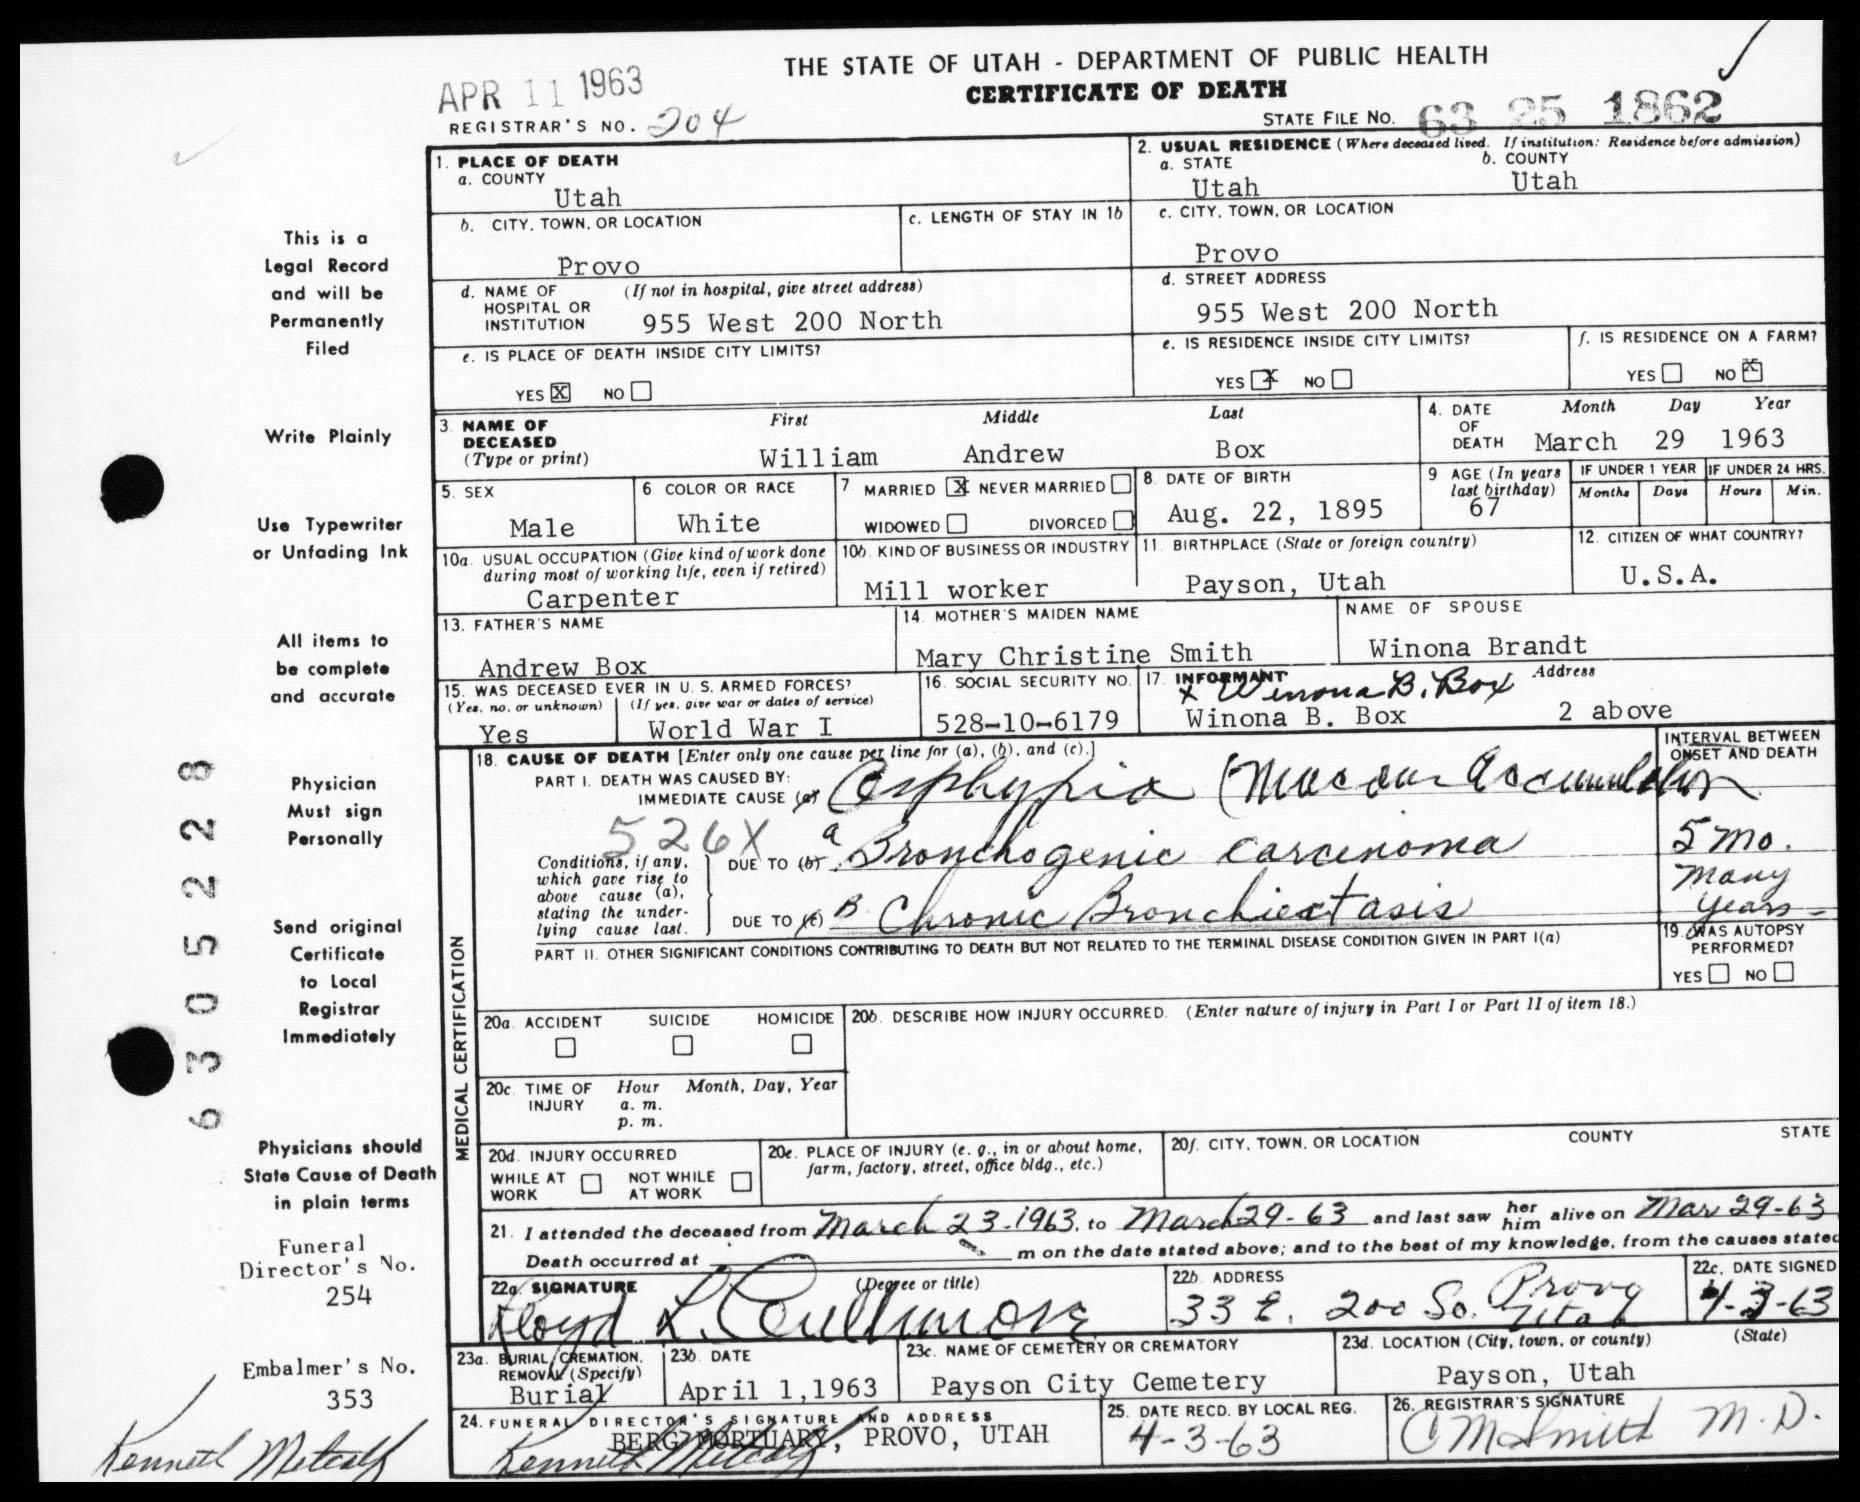 THE STATE OF UTAH - DEPARTMENT OF PUBLIC HEALTH
CERTIFICATE OF DEATH
APR 11 1963
REGISTRAR'S NO. 204
STATE FILE NO. 63 25 1862
1. PLACE OF DEATH
a. COUNTY
Utah
2. USUAL RESIDENCE (Where deceased lived. If institution: Residence before admission)
a. STATE b. COUNTY
Utah Utah
b. CITY, TOWN, OR LOCATION
Provo
c. LENGTH OF STAY IN 1b
c. CITY, TOWN, OR LOCATION
Provo
d. NAME OF HOSPITAL OR INSTITUTION (If not in hospital, give street address)
955 West 200 North
d. STREET ADDRESS
955 West 200 North
e. IS PLACE OF DEATH INSIDE CITY LIMITS?
YES X NO
e. IS RESIDENCE INSIDE CITY LIMITS?
YES X NO
f. IS RESIDENCE ON A FARM?
YES NO X
3. NAME OF DECEASED (Type or print)
First Middle Last
William Andrew Box
4. DATE OF DEATH Month Day Year
March 29 1963
5. SEX
Male
6. COLOR OR RACE
White
7. MARRIED X NEVER MARRIED
WIDOWED DIVORCED
8. DATE OF BIRTH
Aug. 22, 1895
9 AGE (In years last birthday)
67
IF UNDER 1 YEAR
Months Days
IF UNDER 24 HRS.
Hours Min.
10a. USUAL OCCUPATION (Give kind of work done
during most of working life, even if retired)
Carpenter
10b. KIND OF BUSINESS OR INDUSTRY
Mill worker
11. BIRTHPLACE (State or foreign country)
Payson, Utah
12. CITIZEN OF WHAT COUNTRY?
U.S.A.
13. FATHER'S NAME
Andrew Box
14. MOTHER'S MAIDEN NAME
Mary Christine Smith
NAME OF SPOUSE
Winona Brandt
15. WAS DECEASED EVER IN U.S. ARMED FORCES?
(Yes, no, or unknown) (If yes, give war or dates of service)
Yes World War I
16. SOCIAL SECURITY NO.
528-10-6179
17. INFORMANT Address
x Winona B. Box
Winona B. Box 2 above
18. CAUSE OF DEATH [Enter only one cause per line for (a), (b), and (c).]
INTERVAL BETWEEN ONSET AND DEATH
PART I. DEATH WAS CAUSED BY:
IMMEDIATE CAUSE (a) Asphyxia (Mucous Accumulation
526X
Conditions, if any,
which gave rise to
above cause (a),
stating the under-
lying cause last.
DUE TO (b) a Bronchogenic carcinoma 5 mo.
DUE TO (c) B Chronic Bronchiectasis many years
PART II. OTHER SIGNIFICANT CONDITIONS CONTRIBUTING TO DEATH BUT NOT RELATED TO THE TERMINAL DISEASE CONDITION GIVEN IN PART I(a)
19. WAS AUTOPSY PERFORMED?
YES NO
MEDICAL CERTIFICATION
20a. ACCIDENT SUICIDE HOMICIDE
20b. DESCRIBE HOW INJURY OCCURRED. (Enter nature of injury in Part I or Part II of item 18.)
20c. TIME OF INJURY Hour Month, Day, Year
a. m.
p. m.
20d. INJURY OCCURRED
WHILE AT WORK NOT WHILE AT WORK
20e. PLACE OF INJURY (e. g., in or about home,
farm, factory, street, office bldg., etc.)
20f. CITY, TOWN, OR LOCATION COUNTY STATE
21. I attended the deceased from March 23-1963, to March 29-63 and last saw her him alive on Mar 29-63
Death occurred at m on the date stated above; and to the best of my knowledge, from the causes stated
22a. SIGNATURE (Degree or title)
Lloyd L. Cullimore
22b. ADDRESS
33 E. 200 So. Provo Utah
22c. DATE SIGNED
4-3-63
23a. BURIAL, CREMATION,
REMOVAL (Specify)
Burial
23b. DATE
April 1, 1963
23c. NAME OF CEMETERY OR CREMATORY
Payson City Cemetery
23d. LOCATION (City, town, or county) (State)
Payson, Utah
24. FUNERAL DIRECTOR'S SIGNATURE AND ADDRESS
BERG MORTUARY, PROVO, UTAH
Kenneth Metcalf
25. DATE RECD. BY LOCAL REG.
4-3-63
26. REGISTRAR'S SIGNATURE
C M Smith M.D.
This is a
Legal Record
and will be
Permanently
Filed
Write Plainly
Use Typewriter
or Unfading Ink
All items to
be complete
and accurate
Physician
Must sign
Personally
Send original
Certificate
to Local
Registrar
Immediately
Physicians should
State Cause of Death
in plain terms
Funeral
Director's No.
254
Embalmer's No.
353
Kenneth Metcalf
6305228